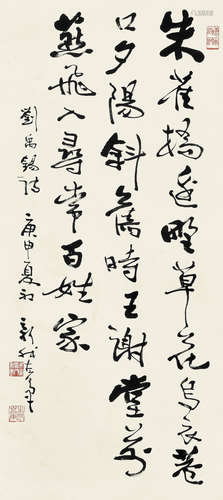 朱雀橋邊野草花烏衣巷
口夕陽斜舊時王謝堂前
燕飛入尋常百姓家
劉禹錫詩 庚申夏初